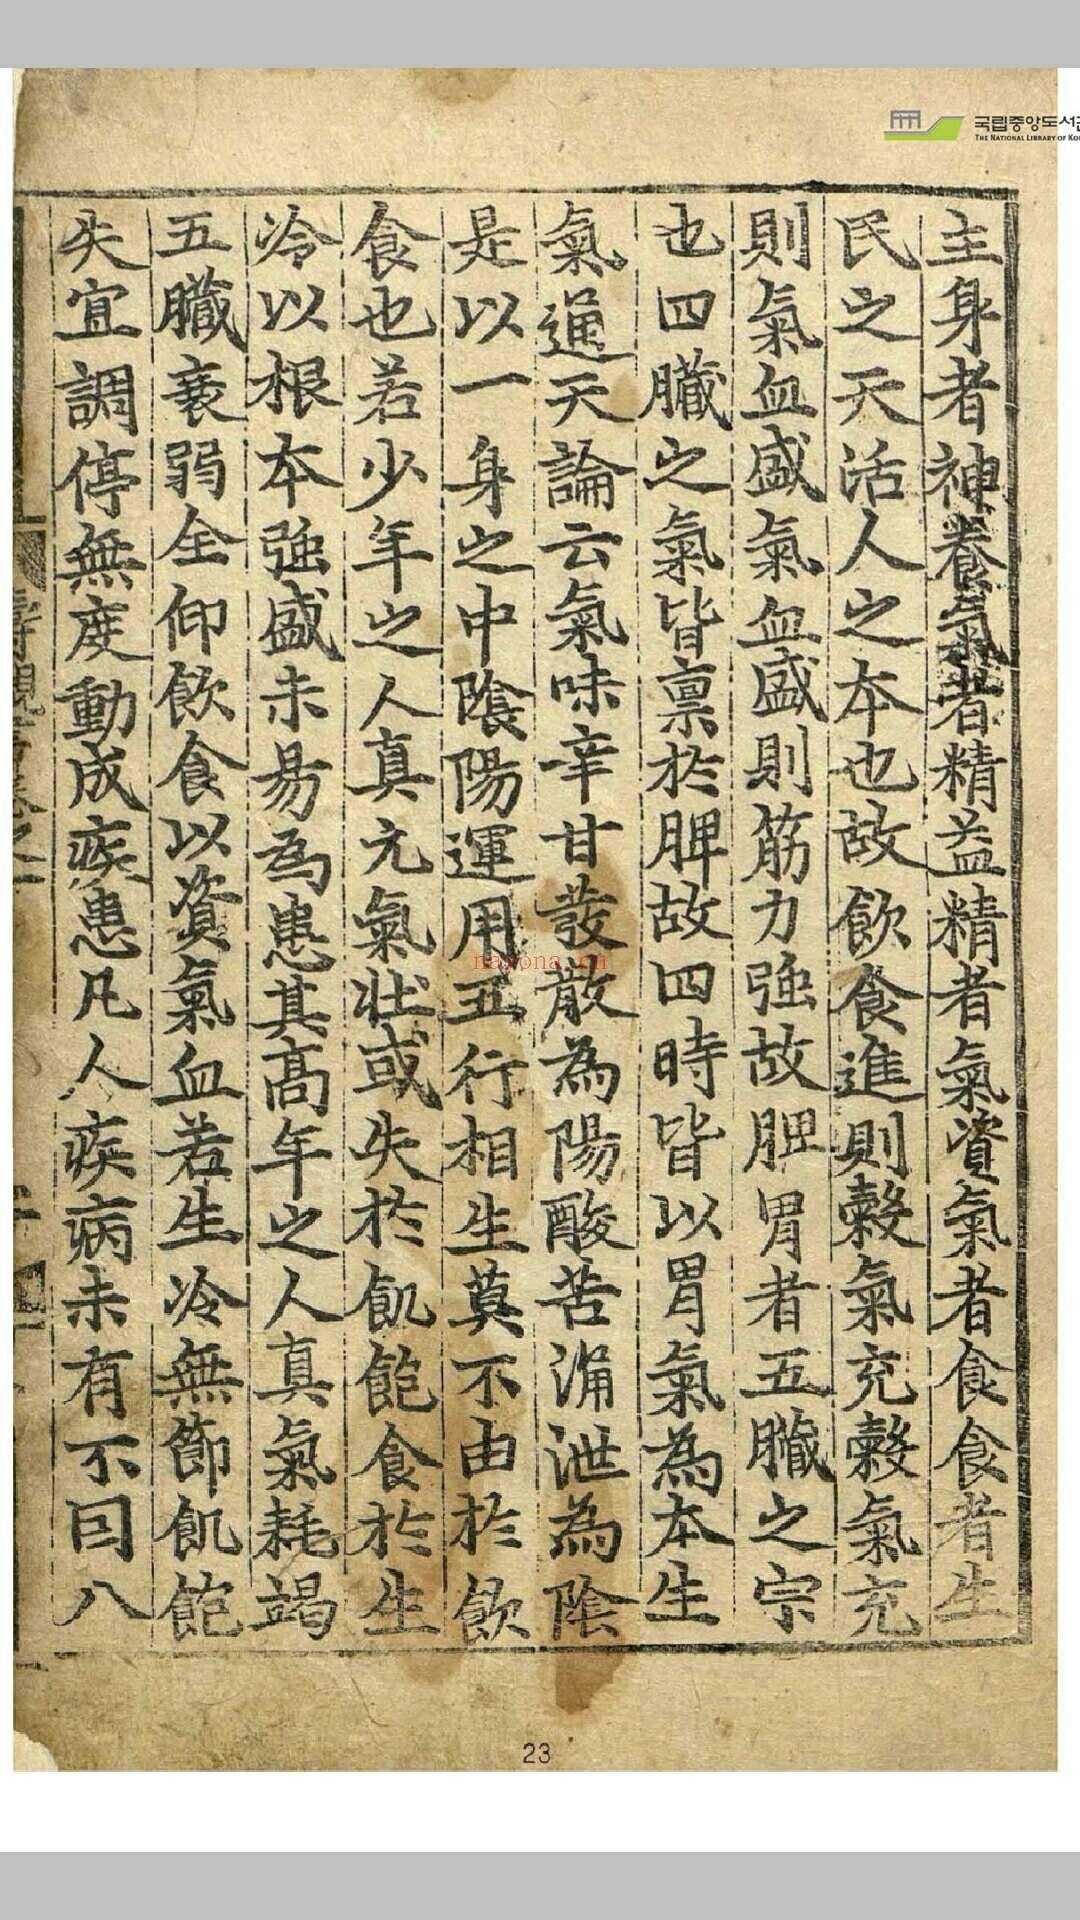 국립중앙도서관
THE NATIONAL LIBRARY OF KO
主身者神養氣者精益精者氣資氣者食食者生
民之天活人之本也故飲食進則穀氣充穀氣充
則氣血盛氣血盛則筋力強故脾胃者五臟之宗
也四臟之氣皆禀於脾故四時皆以胃氣為本生
氣通天論云氣味辛甘發散為陽酸苦涌泄為陰
是以一身之中陰陽運用五行相生莫不由於飲
食也若少年之人真元氣壯或失於飢飽食於生
冷以根本強盛未易為患其髙年之人真氣耗竭
五臟衰弱全仰飲食以資氣血若生冷無節飢飽
失宜調停無度動成疾患凡人疾病未有不囙八
壽親
卷之一
nayona.cn
23